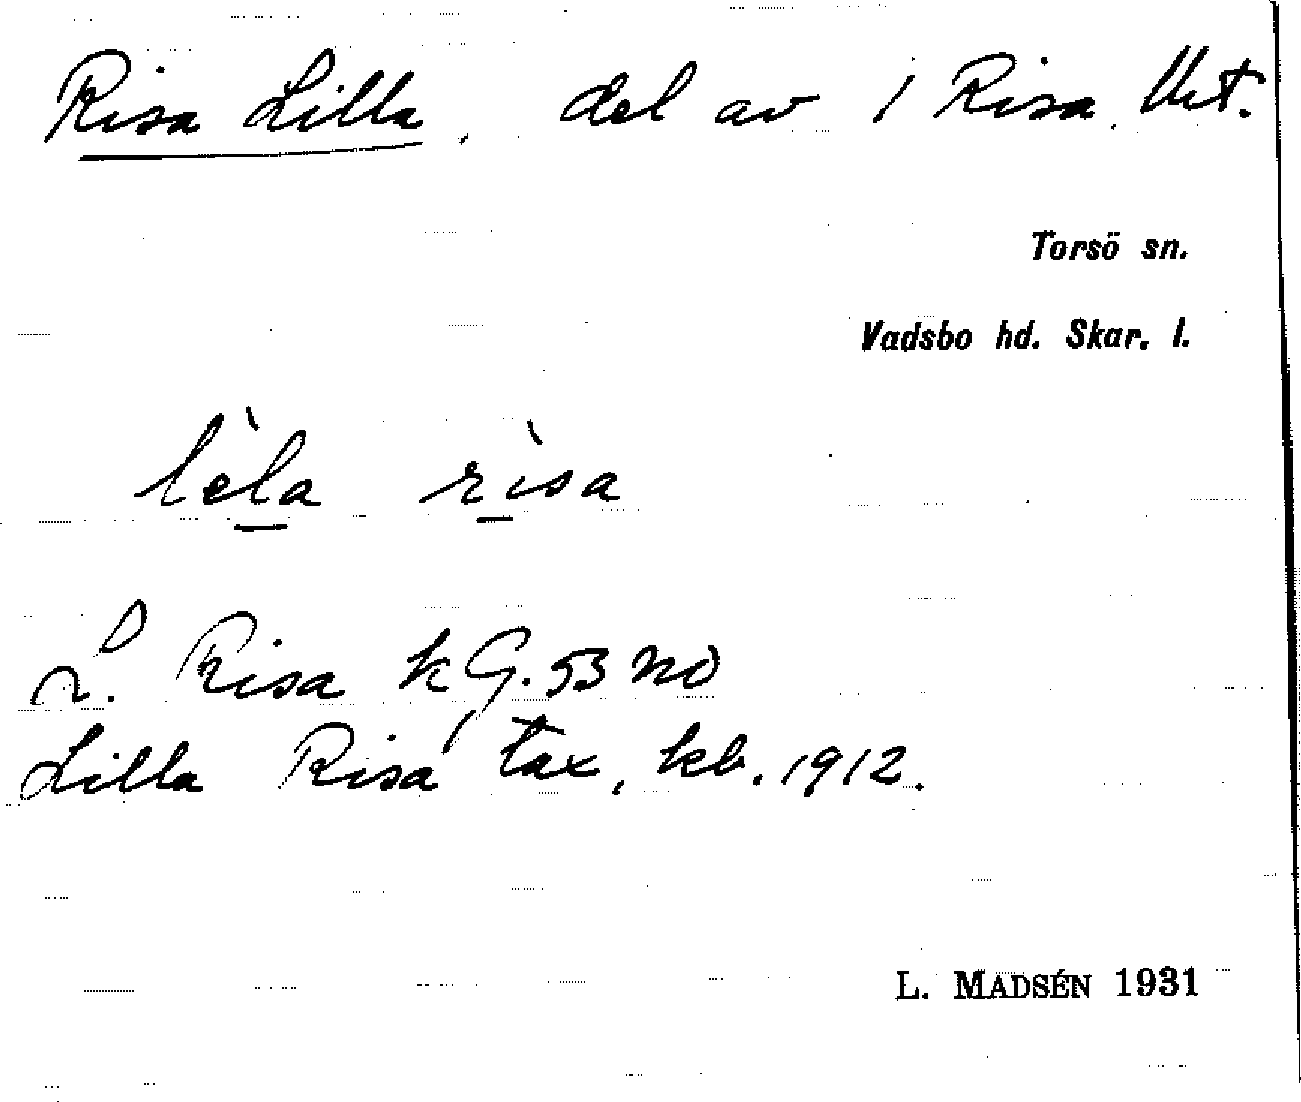 Risa Lilla, del av 1 Risa, Utt.
Torsö sn.
Vadsbo hd. Skar. l.
lèla rìsa
L. Risa kG. 53 NO
Lilla Risa tax, kb. 1912.
L. MADSÉN 1931